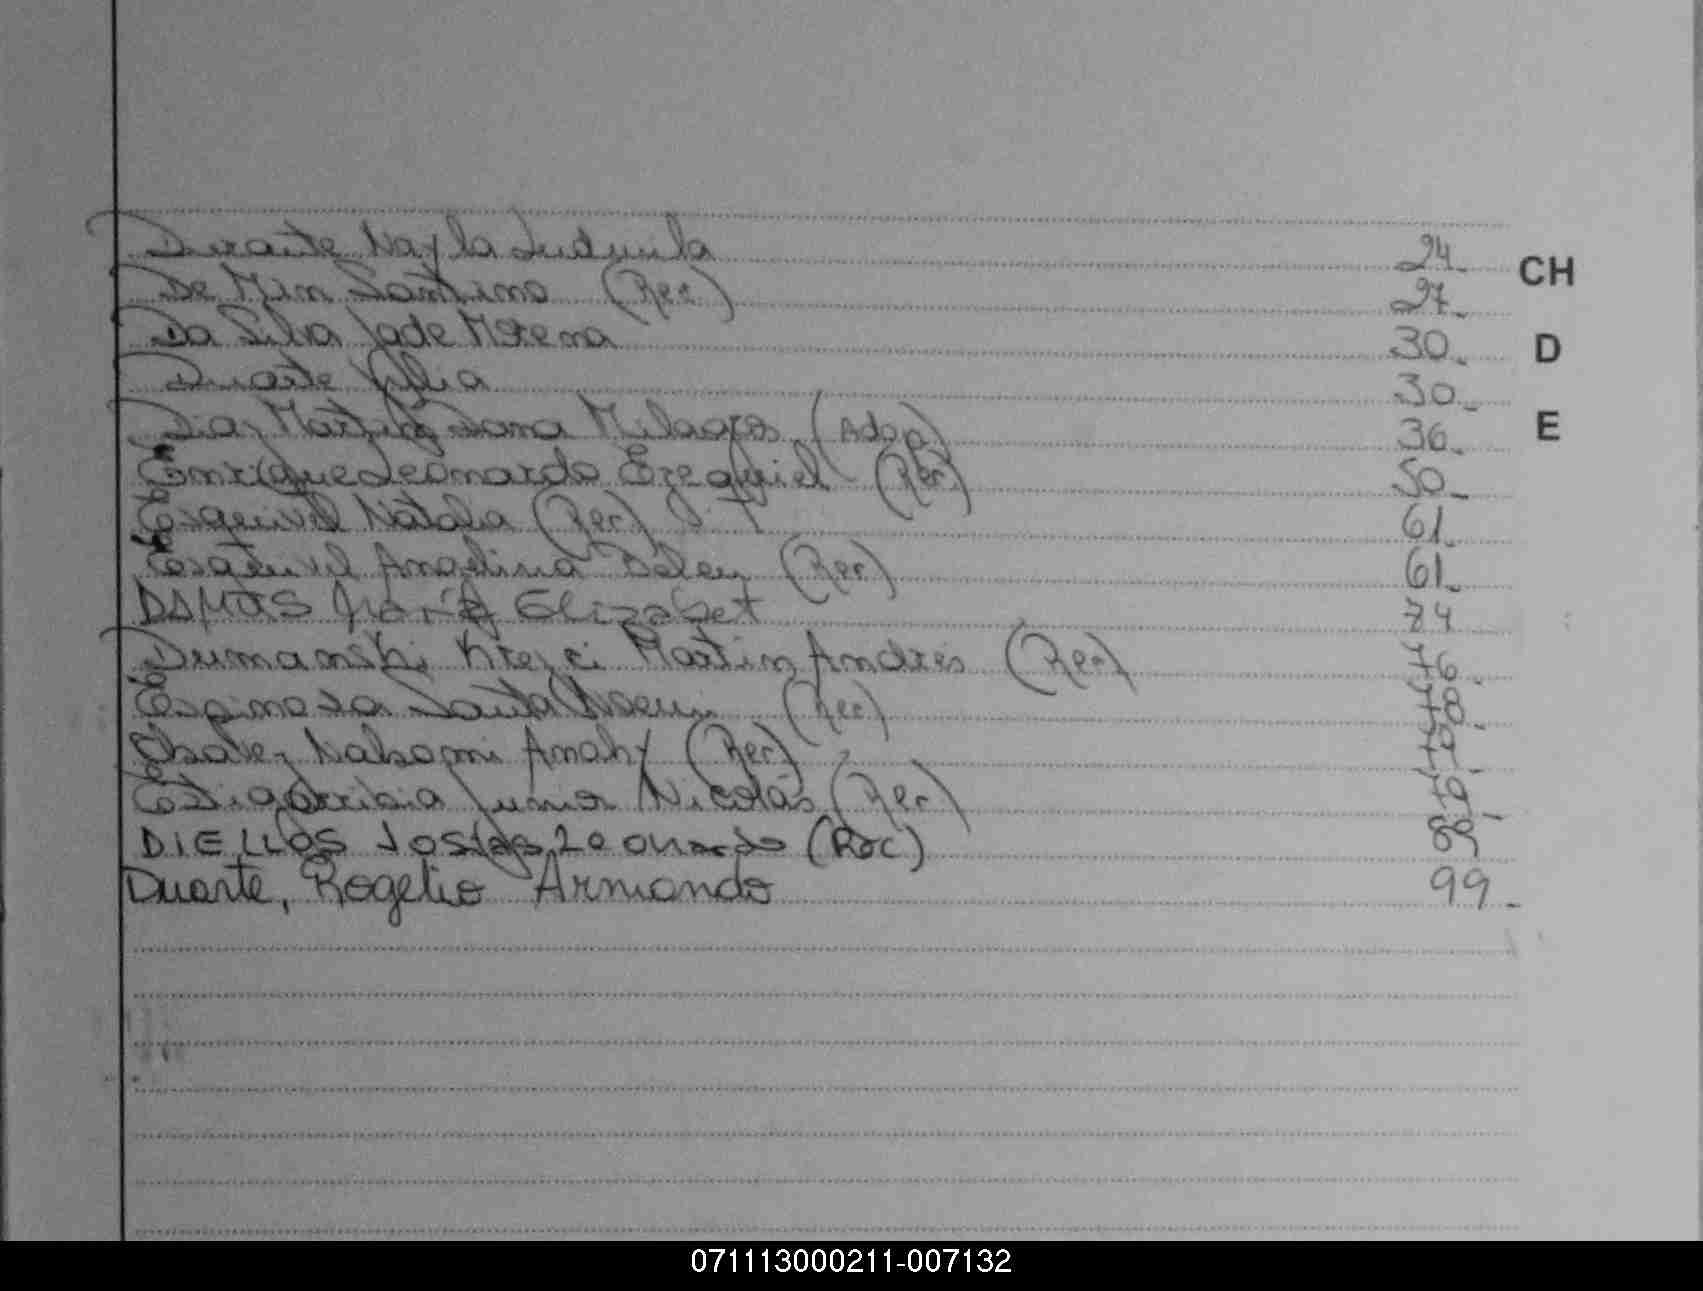 Duarte Nayla Ludmila 24
De Min Santino (Rec) 27 CH
Da Silva Jade Morena 30 D
Duarte Julia 30
Diaz Martinez Dana Milagros (Adop) 36 E
Enrique Leonardo Ezequiel (Rec) 50
Esquivel Natalia (Rec) 61
Esquivel Angelina Belen (Rec) 61
DAMUS María Elizabet 74
Dumanski Krejci Martin Andres (Rec) 76
Espinosa Santa Noemi (Rec) 78
Nahomi Anahy (Rec) 79
Estigarribia Junior Nicolás (Rec) 79
DIELLOS Josías Leonardo (Rec) 89
Duarte, Rogelio Armando 99
071113000211-007132